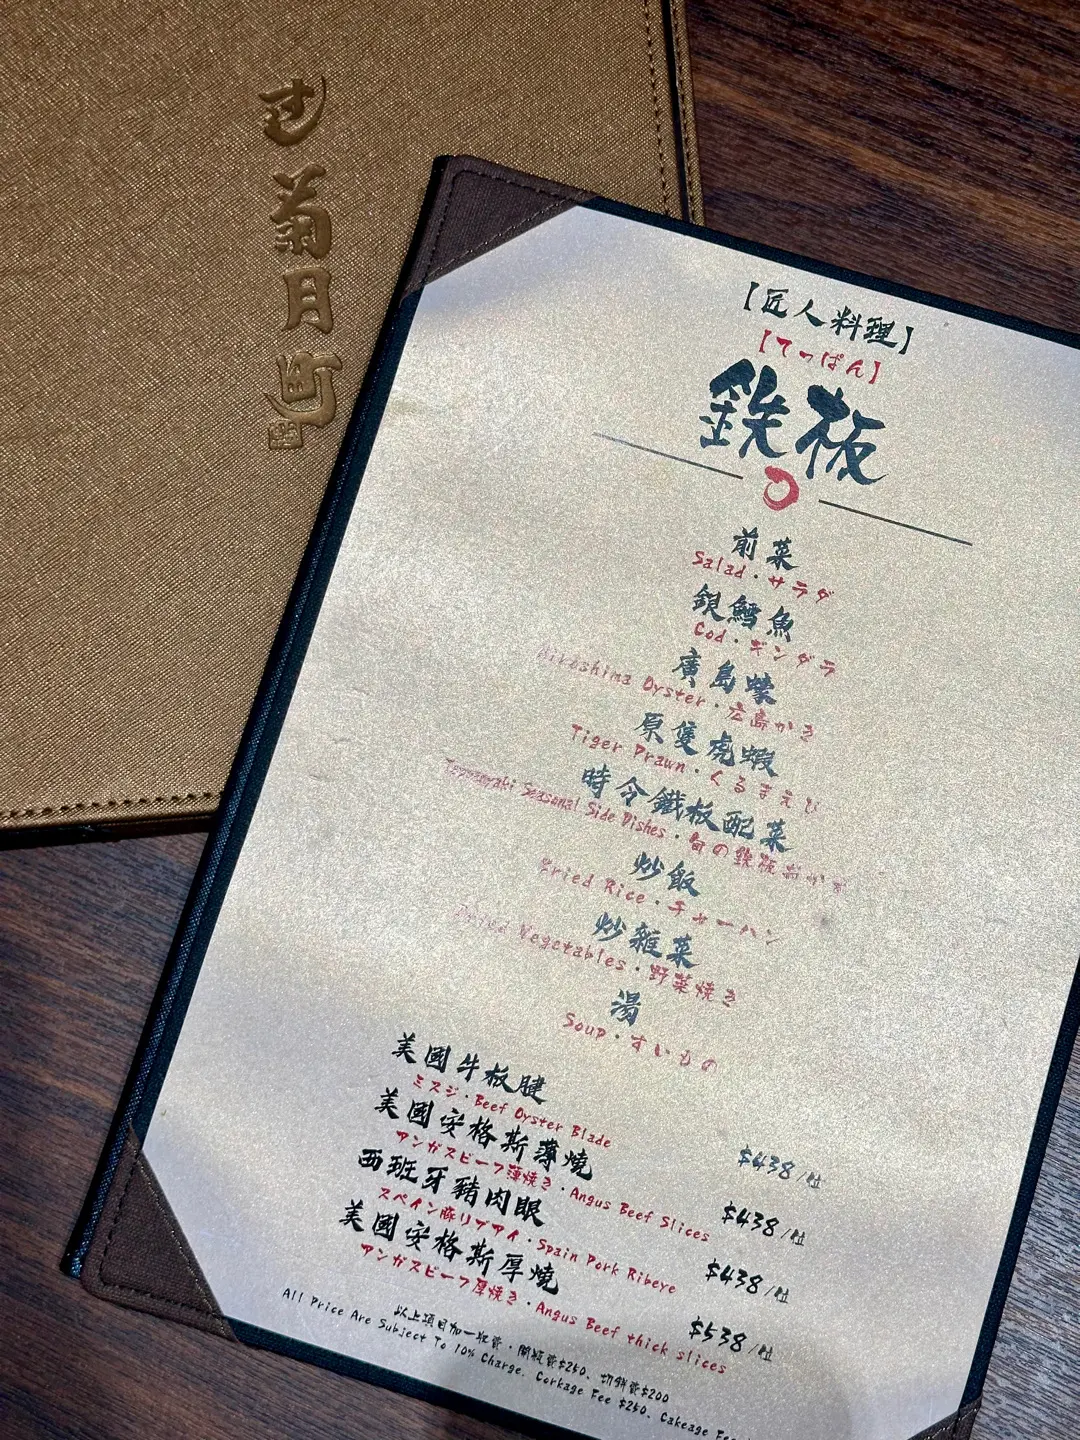 菊月町
【匠人料理】
【てっぱん】
鉄板
前菜
Salad・サラダ
銀鱈魚
Cod・ギンダラ
廣島蠔
Hiroshima Oyster・広島かき
原隻虎蝦
Tiger Prawn・くるまえび
時令鐵板配菜
Teppanyaki Seasonal Side Dishes・旬の鉄板おかず
炒飯
Fried Rice・チャーハン
炒雜菜
Fried Vegetables・野菜焼き
湯
Soup・すいもの
美國牛板腱 $438/位
ミスジ・Beef Oyster Blade
美國安格斯薄燒 $438/位
アンガスビーフ薄焼き・Angus Beef Slices
西班牙豬肉眼 $438/位
スペイン豚リブアイ・Spain Pork Ribeye
美國安格斯厚燒 $538/位
アンガスビーフ厚焼き・Angus Beef thick slices
以上項目加一收費・開瓶費$250、切餅費$200
All Price Are Subject To 10% Charge. Corkage Fee $250、Cakeage